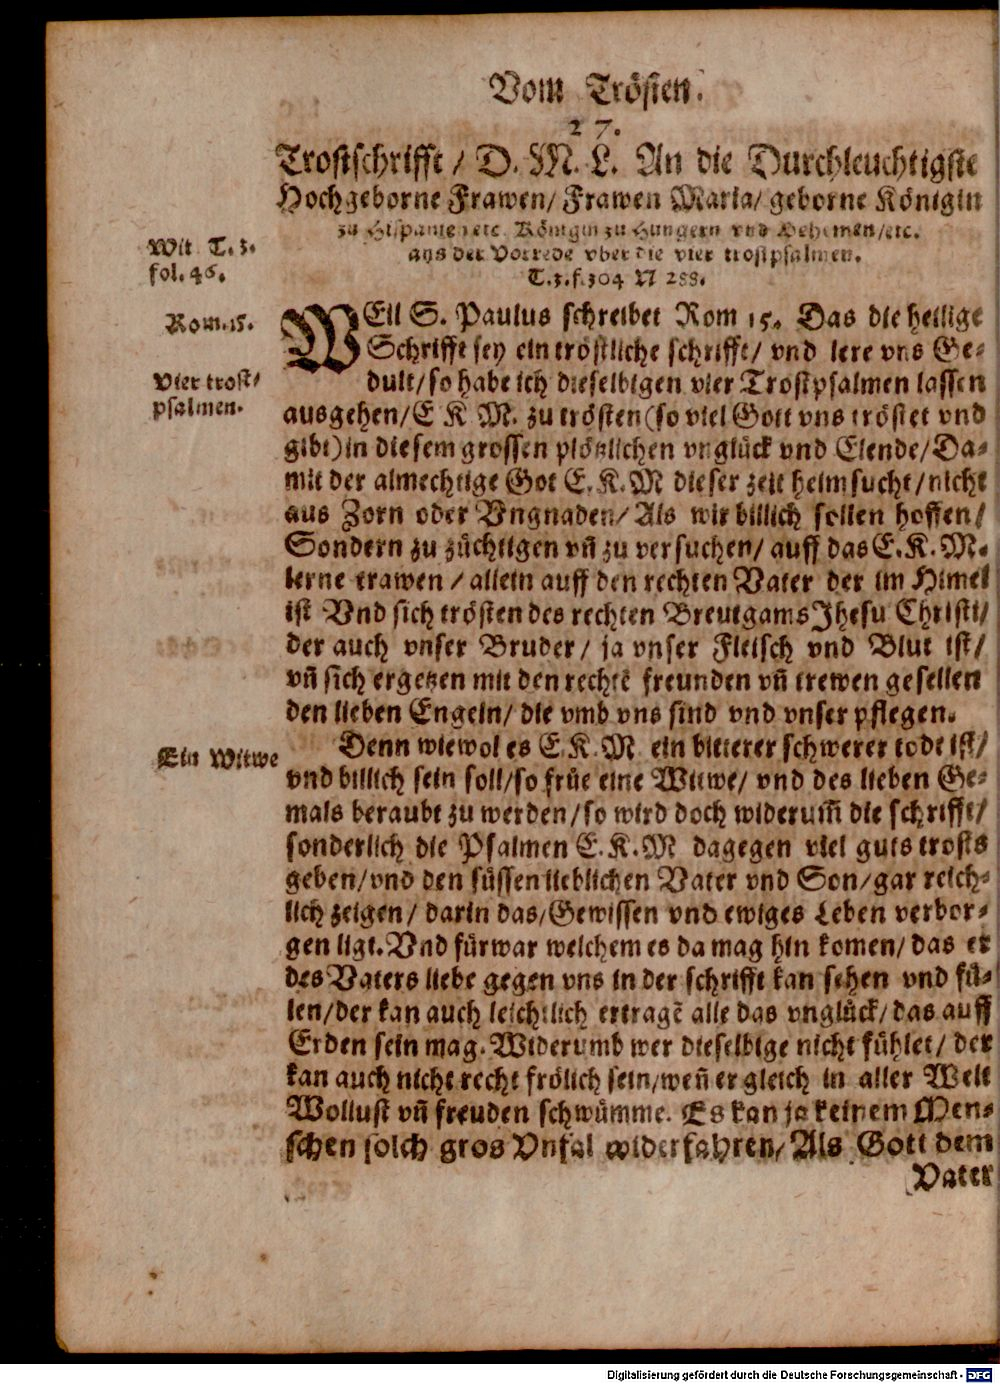 Vom Trösten.
27.
Trostschrifft / D. M. L. An die Durchleuchtigste
Hochgeborne Frawen/ Frawen Maria/ geborne Königin
zu Hispanie etc. Königin zu Hungern vnd Behemen/etc.
aus der Vorrede vber die vier trostpsalmen.
T.3.f.304 N 288.
Wit T. 3.
fol. 46.
Rom.15.
Vier trost/
psalmen.
WEil S. Paulus schreibet Rom 15. Das die heilige
Schrifft sey ein tröstliche schrifft/ vnd lere vns Ge-
dult/so habe ich dieselbigen vier Trostpsalmen lassen
ausgehen/E K M. zu trösten(so viel Gott vns tröstet vnd
gibt)in diesem grossen plötzlichen vnglück vnd Elende/Da-
mit der almechtige Got E.K.M dieser zeit heimsucht/nicht
aus Zorn oder Vngnaden/ Als wir billich sollen hoffen/
Sondern zu züchtigen vñ zu versuchen/ auff das E.K.M.
lerne trawen / allein auff den rechten Vater der im Himel
ist Vnd sich trösten des rechten Breutgams Jhesu Christi/
der auch vnser Bruder/ ja vnser Fleisch vnd Blut ist/
vñ sich ergetzen mit den rechtẽ freunden vñ trewen gesellen
den lieben Engeln/ die vmb vns sind vnd vnser pflegen.
Ein Witwe
Denn wiewol es E.K.M ein bitterer schwerer tode ist/
vnd billich sein soll/so früe eine Witwe/ vnd des lieben Ge-
mals beraubt zu werden/so wird doch widerum̃ die schrifft/
sonderlich die Psalmen E.K.M dagegen viel guts trosts
geben/vnd den süssen lieblichen Vater vnd Son/gar reich-
lich zeigen/ darin das/Gewissen vnd ewiges Leben verbor-
gen ligt. Vnd fürwar welchem es da mag hin komen/ das er
des Vaters liebe gegen vns in der schrifft kan sehen vnd fü-
len/der kan auch leichtlich ertragẽ alle das vnglück/das auff
Erden sein mag. Widerumb wer dieselbige nicht fühlet/ der
kan auch nicht recht frölich sein/weñ er gleich in aller Welt
Wollust vñ freuden schwümme. Es kan ja keinem Men-
schen solch gros Vnfal widerfahren/ Als Gott dem
Vater
Digitalisierung gefördert durch die Deutsche Forschungsgemeinschaft - DFG